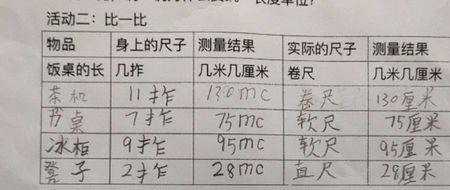 活动二：比一比
物品 身上的尺子 测量结果 实际的尺子 测量结果
饭桌的长 几拃 几米几厘米 卷尺 几米几厘米
茶机 11拃 130mc 卷尺 130厘米
书桌 7拃 75mc 软尺 75厘米
冰柜 9拃 95mc 软尺 95厘米
凳子 2拃 28mc 直尺 28厘米